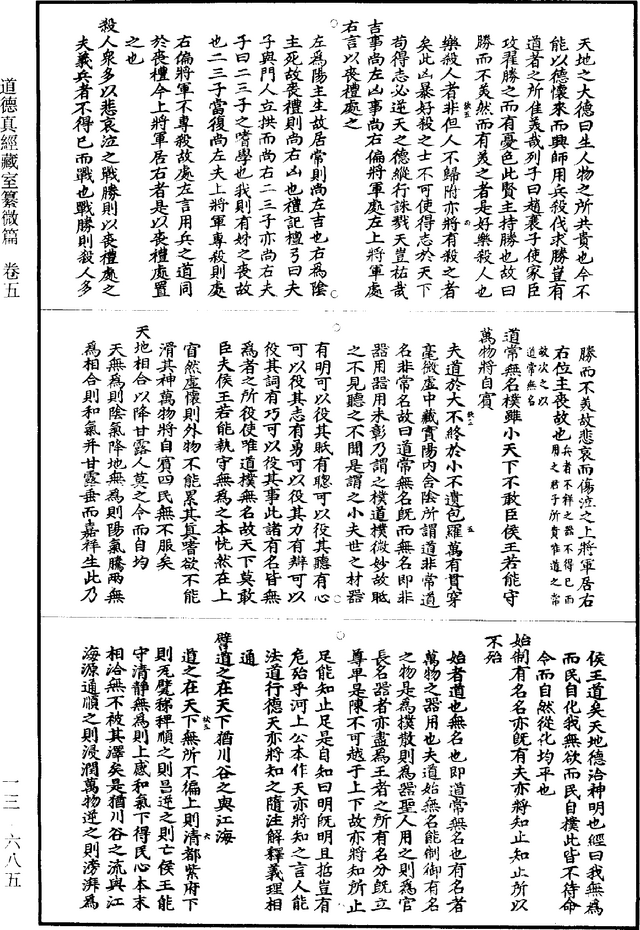 天地之大德曰生人物之所共貴也今不
能以德懷來而興師用兵殺伐求勝豈有
道者之所佳美哉列子曰趙襄子使家臣
攻翟勝之而有憂色此賢主持勝也故曰
勝而不美然而有美之者是好樂殺人也
樂殺人者非但人不歸附亦將有殺之者
矣此凶暴好殺之士不可使得志於天下
苟得志必逆天之德縱行誅戮天豈祐哉
吉事尚左凶事尚右偏將軍處左上將軍處
右言以喪禮處之
左為陽主生故居常則尚左吉也右為陰
主死故喪禮則尚右凶也禮記檀弓曰夫
子與門人立拱而尚右二三子亦尚右夫
子曰二三子之嗜學也我則有姊之喪故
也二三子當復尚左夫上將軍專殺則處
右偏將軍不專殺故處左言用兵之道同
於喪禮今上將軍居右者是以喪禮處置
之也
殺人衆多以悲哀泣之戰勝則以喪禮處之
夫義兵者不得已而戰也戰勝則殺人多
勝而不美故悲哀而傷泣之上將軍居右
右位主喪故也兵者不祥之器不得已而用之君子所貴惟道之常故次之以道常無名
道常無名樸雖小天下不敢臣侯王若能守
萬物將自賓
夫道於大不終於小不遺包羅萬有貫穿
毫微虛中藏實陽內含陰所謂道非常道
名非常名故曰道常無名既而無名即非
器用器用未彰乃謂之樸道樸微妙故眡
之不見聽之不聞是謂之小夫世之材器
有明可以役其眡有聰可以役其聽有心
可以役其志有勇可以役其力有辯可以
役其詞有巧可以役其事此諸有名皆無
為者之所役使唯道樸無名故天下莫敢
臣夫侯王若能執守無為之本恍然在上
窅然虛懷則外物不能累其真嗜欲不能
滑其神萬物將自賓四民無不服矣
天地相合以降甘露人莫之令而自均
天無為則陰氣降地無為則陽氣騰兩無
為相合則和氣并甘露垂而嘉祥生此乃
侯王道矣天地德洽神明也經曰我無為
而民自化我無欲而民自樸此皆不待命
令而自然從化均平也
始制有名名亦既有夫亦將知止知止所以
不殆
始者道也無名也即道常無名也有名者
萬物之器用也夫道始無名能制御有名
之物是為樸散則為器聖人用之則為官
長名器者亦盡為王者之所有名分既立
尊卑是陳不可越于上下故亦將知所止
足能知止足是自知曰明既明且哲豈有
危殆乎河上公本作天亦將知之言人能
法道行德天亦將知之隨注解釋義理相
通
譬道之在天下猶川谷之與江海
道之在天下無所不徧上則清都紫府下
則瓦甓稊稗順之則昌逆之則亡侯王能
守清靜無為則上感和氣下得民心本末
相洽無不被其澤矣是猶川谷之流與江
海源通順之則浸潤萬物逆之則滂湃為
道德真經藏室纂微篇 卷五
一三·六八五